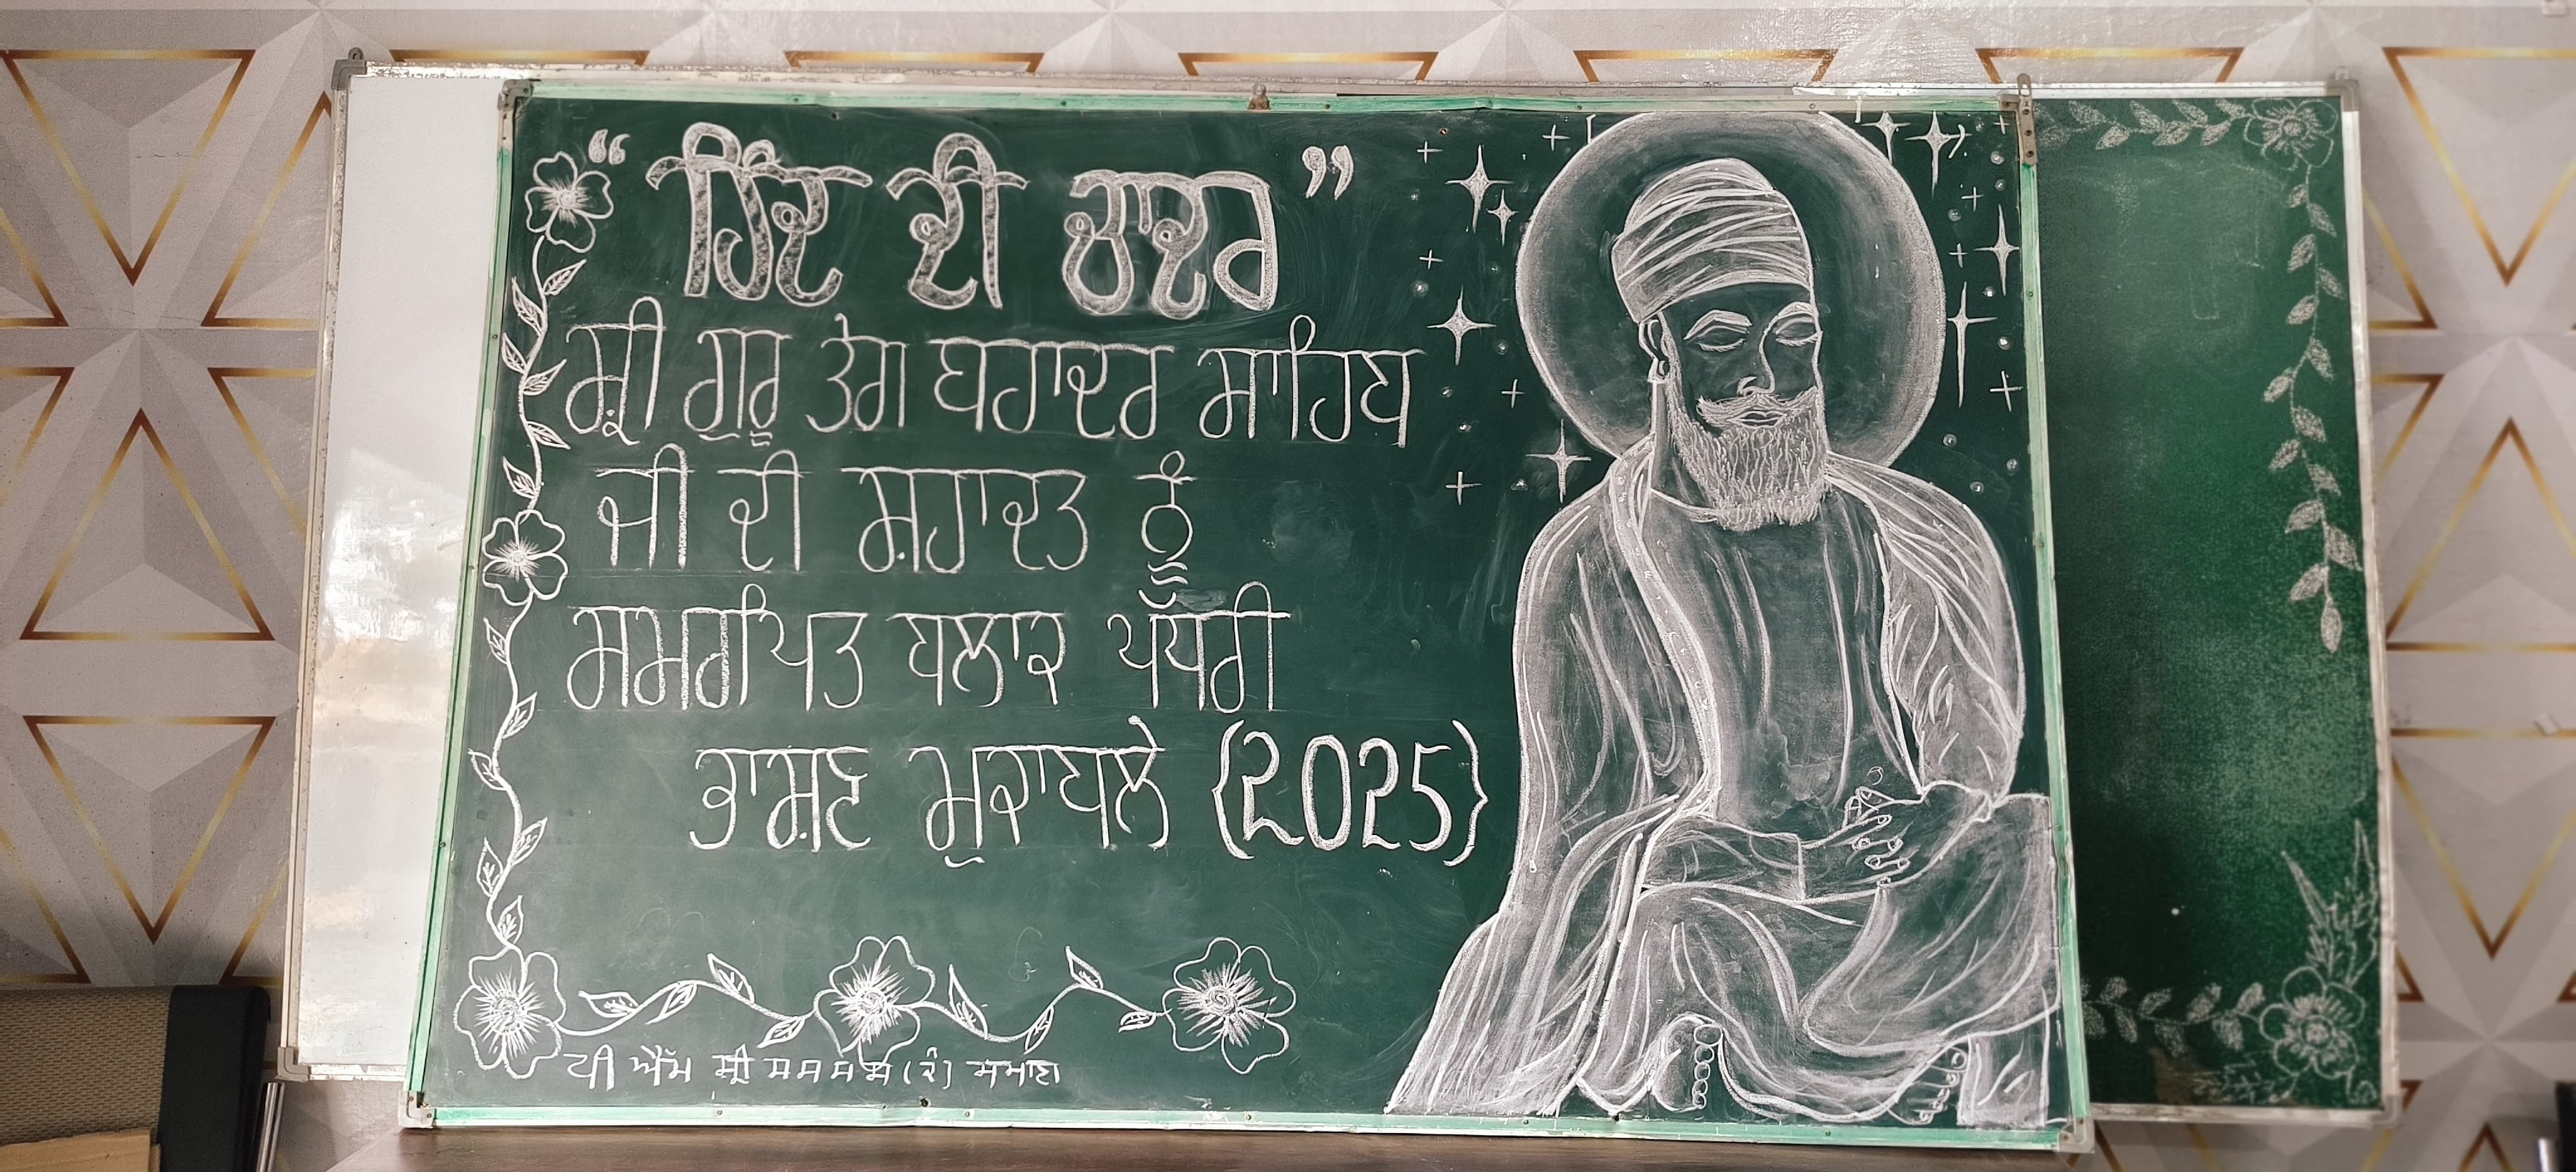 “ ਹਿੰਦ ਦੀ ਚਾਦਰ ”
ਸ਼੍ਰੀ ਗੁਰੂ ਤੇਗ ਬਹਾਦਰ ਸਾਹਿਬ
ਜੀ ਦੀ ਸ਼ਹਾਦਤ ਨੂੰ
ਸਮਰਪਿਤ ਬਲਾਕ ਪੱਧਰੀ
ਭਾਸ਼ਣ ਮੁਕਾਬਲੇ {2025}
ਪੀ ਐੱਮ ਸ਼੍ਰੀ ਸ ਸ ਸ ਸ (ਕੰ) ਸਮਾਣਾ